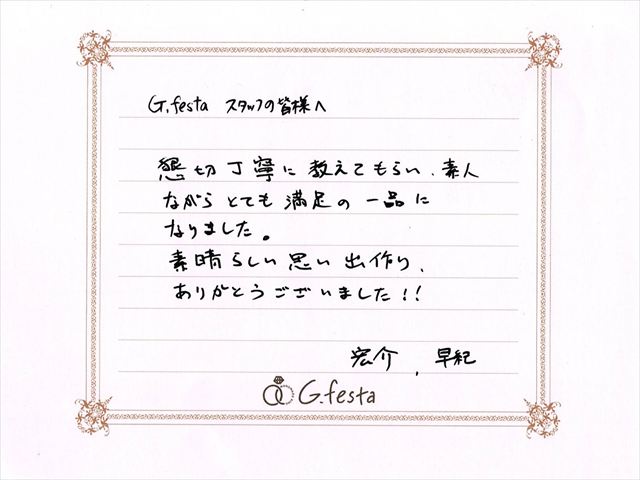 G.festa スタッフの皆様へ
懇切丁寧に教えてもらい、素人
ながらとても満足の一品に
なりました。
素晴らしい思い出作り、
ありがとうございました!!
宏介、早紀
G.festa